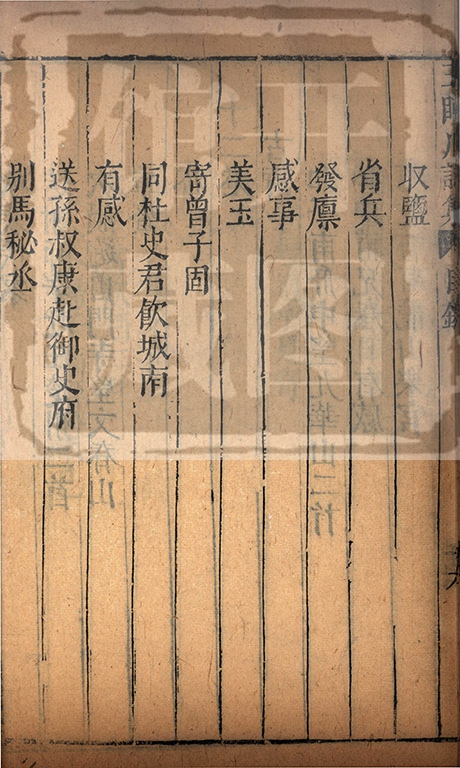 收鹽
省兵
發廩
感事
美玉
寄曾子固
同杜史君飲城南
有感
送孫叔康赴御史府
别馬秘丞